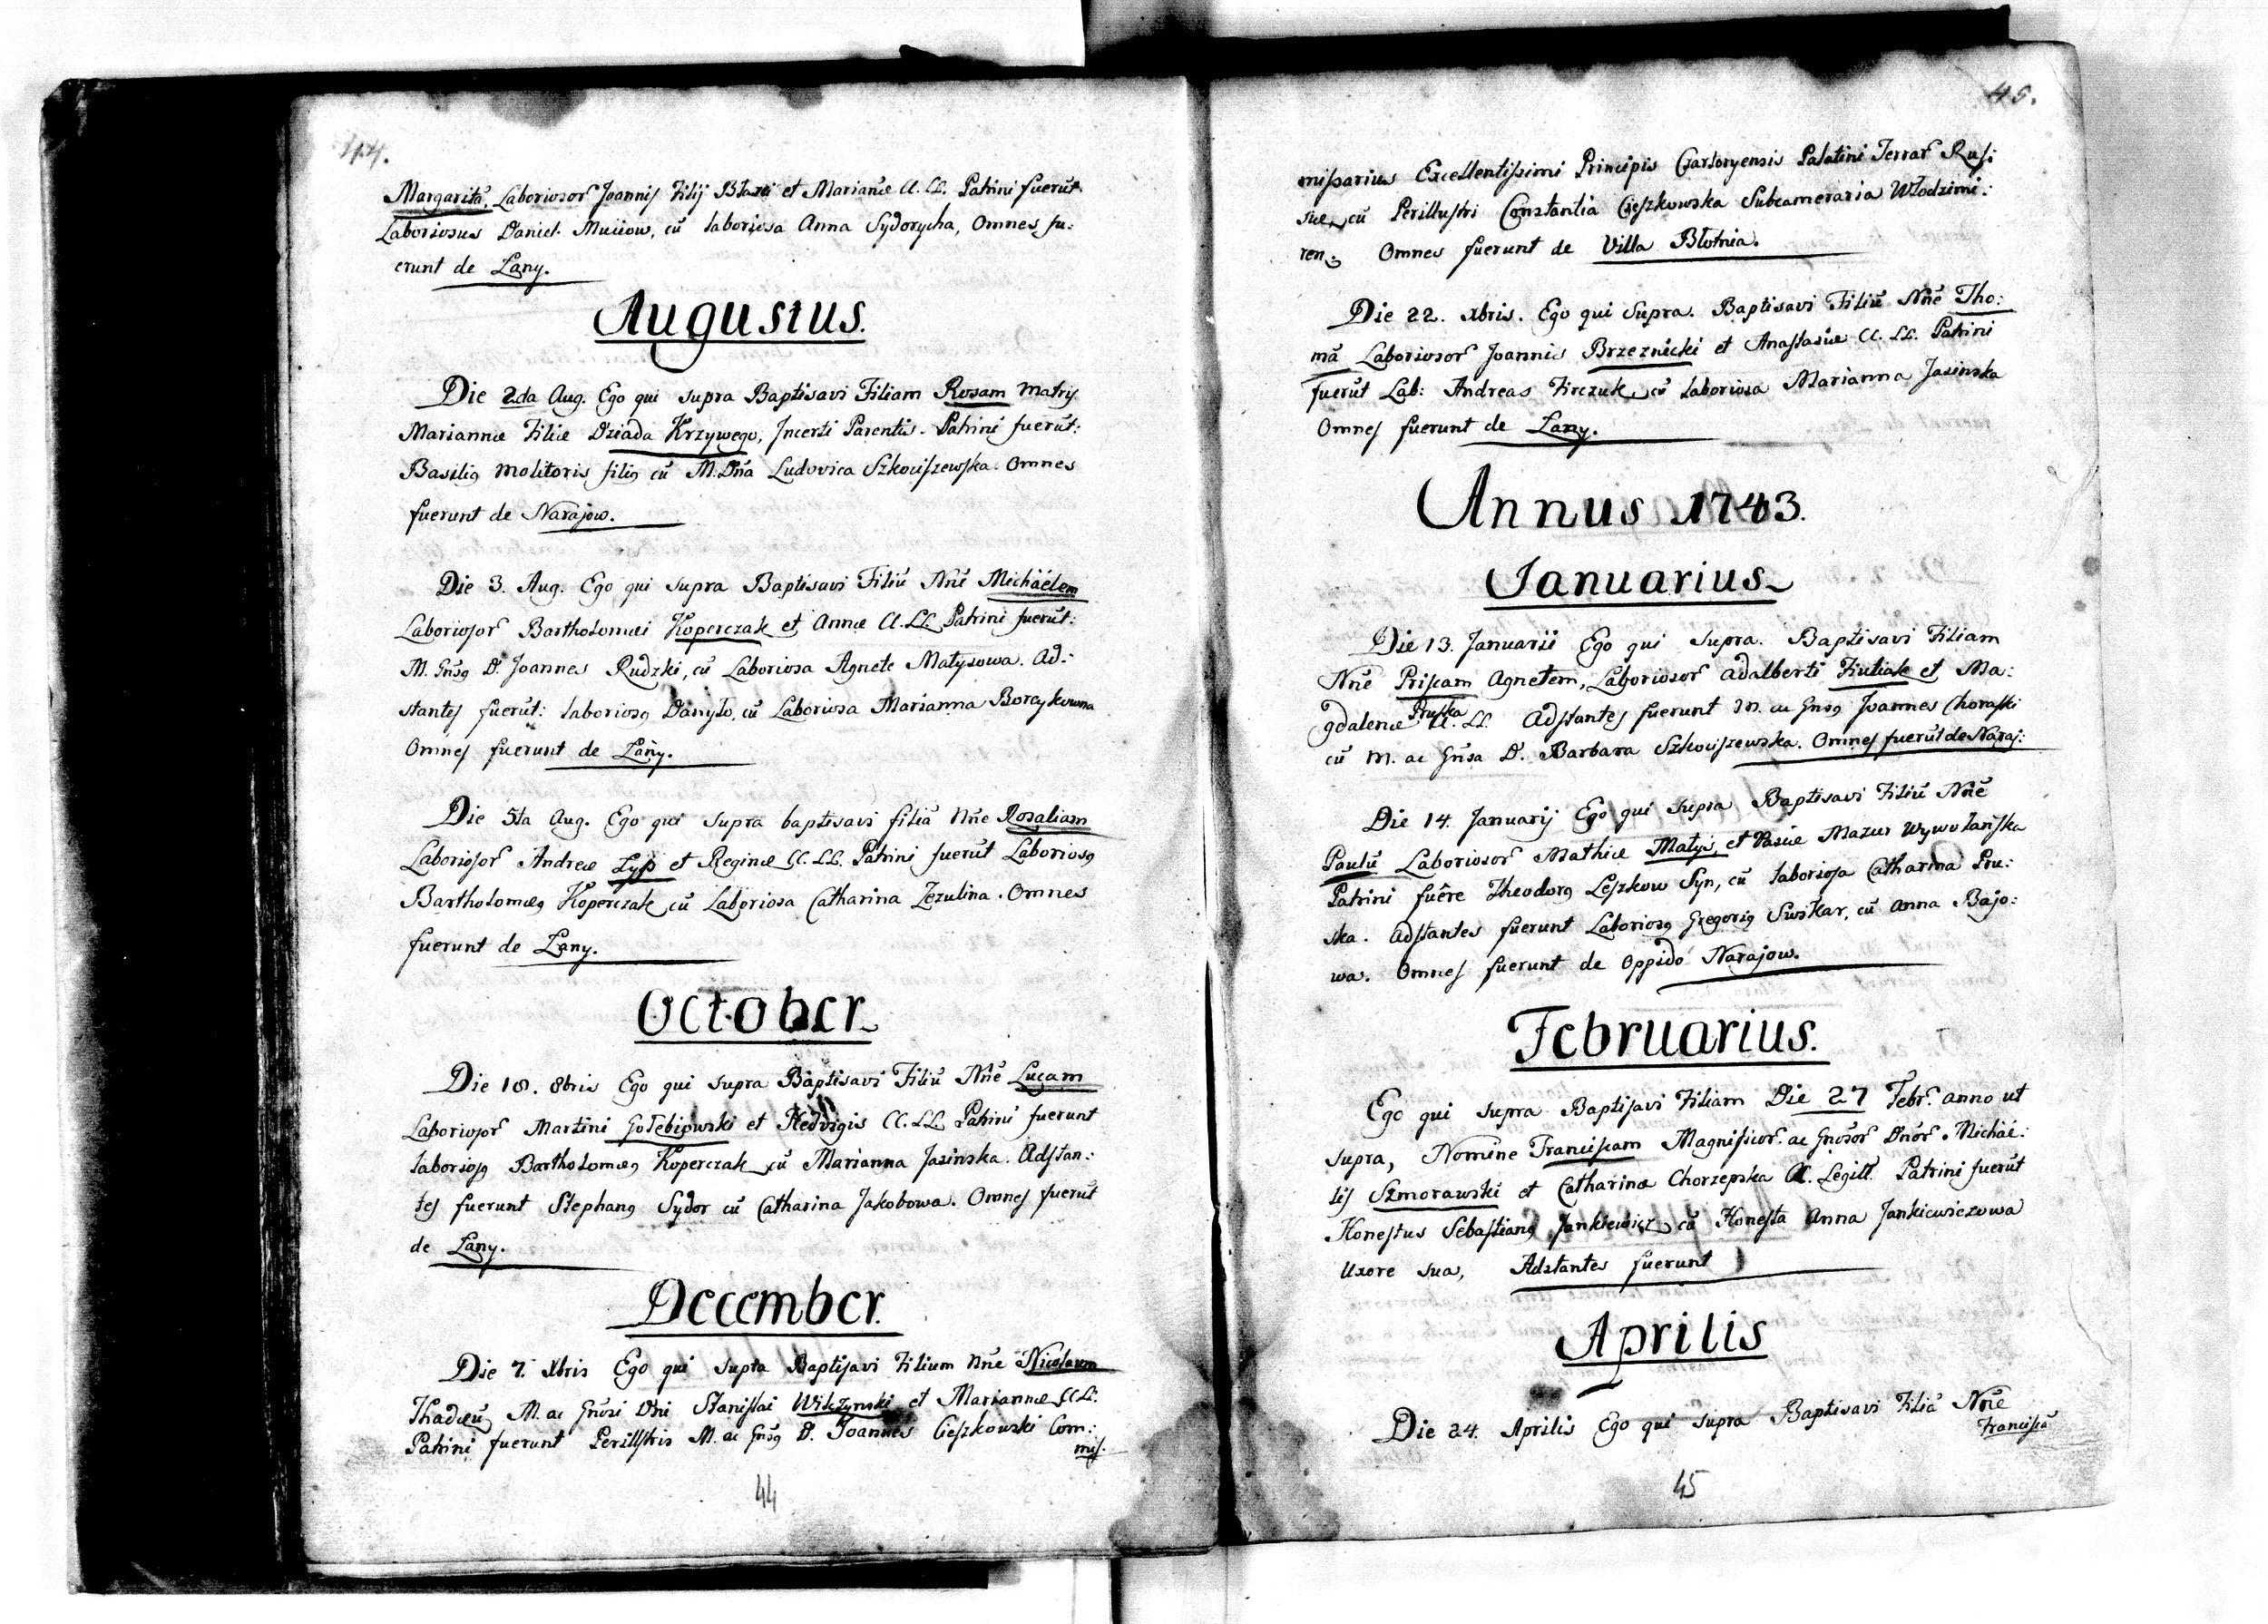 44.
Margaritā, Laboriosor̃ Joannis Filij Błazii et Mariannæ C. LL. Patrini fuerūt
Laboriosus Daniel Muiiow, cū laboriosa Anna Sydorycha, Omnes fu:
erunt de Łany.
Augustus.
Die 2da Aug. Ego qui supra Baptisavi Filiam Rosam Matris
Mariannæ Filiæ Dziada Krzywego, Incerti Parentis. Patrini fuerūt:
Basilig Molitoris filig cū M. Dña Ludovica Szkociszewska. Omnes
fuerunt de Narajow.
Die 3. Aug. Ego qui supra Baptisavi Filiū Nñe Michäelem
Laboriosor̃ Bartholomæi Koperczak et Annæ C. LL. Patrini fuerūt:
M. Gñsg D. Joannes Rudzki, cū Laboriosa Agnete Matysowa. Ad:
stantes fuerūt: laboriosg Danyło, cū Laboriosa Marianna Boraykowna
Omnes fuerunt de Łany.
Die 5ta Aug. Ego qui supra baptisavi filiā Nñe Rosaliam
Laboriosor̃ Andreæ Łyss et Reginæ C. LL. Patrini fuerūt Laboriosg
Bartholomæg Koperczak cū Laboriosa Catharina Zezulina. Omnes
fuerunt de Łany.
October
Die 18. 8bris Ego qui supra Baptisavi Filiū Nñe Lucam
Laboriosor̃ Martini Gołebiowski et Hedvigis C. LL. Patrini fuerunt
laboriosg Bartholomæg Koperczak cū Marianna Jasinska. Adstan:
tes fuerunt Stephang Sydor cū Catharina Jakobowa. Omnes fuerūt
de Łany.
December.
Die 7. Xbris Ego qui supra Baptisavi Filium Nñe Nicolaum
Thadæū M. ac Gñosi Dñi Stanislai Wilczynski et Mariannæ C. LL.
Patrini fuerunt Perillstris M. ac Gñsg D. Joannes Cieszkowski Com:
mis.
44
45.
missarius Excellentissimi Principis Czartoryensis Palatini Terrar̃ Rusi
siæ, cū Perillustri Constantia Cieszkowska Subcameraria Włodzimi:
ren; Omnes fuerunt de Villa Błotnia.
Die 22. Xbris. Ego qui supra. Baptisavi Filiū Nñe Tho:
mā Laboriosor̃ Joannis Brzeznicki et Anastasiæ C. LL. Patrini
fuerūt Lab: Andreas Firczuk, cū laboriosa Marianna Jasinska
Omnes fuerunt de Łany.
Annus 1743.
Januarius
Die 13. Januarii Ego qui supra. Baptisavi Filiam
Nñe Priscam Agnetem, Laboriosor̃ Adalberti Kuliak et Ma:
gdalenæ Pruska C. LL. Adstantes fuerunt M. ac Gñsg Joannes Choraski
cū M. ac Gñsa D. Barbara Szkociszewska. Omnes fuerūt de Naraj:
Die 14. Januarij Ego qui supra Baptisavi Filiū Nñe
Paulū Laboriosor̃ Mathiæ Matys, et Pasiæ Mazur Wywołańska
Patrini fuêre Theodorg Leszkow Syn, cū laboriosa Catharina Pru:
ska. Adstantes fuerunt Laboriosg Gregorig Switar, cū Anna Bajo:
wa. Omnes fuerunt de Oppido Narajow.
Februarius.
Ego qui supra Baptisavi Filiam Die 27 Febr. anno ut
supra, Nomine Franciscam Magnificor̃ ac Gñosor̃ Dñor̃. Michäe:
lis Szmorawski et Catharinæ Chorzepska C. Legitt. Patrini fuerūt
Honestus Sebastiang Jankiewicz cū Honesta Anna Jankiewiczowa
Uxore sua, Adstantes fuerunt
Aprilis
Die 24. Aprilis Ego qui supra Baptisavi Filiā Nñe
Franciscā
45